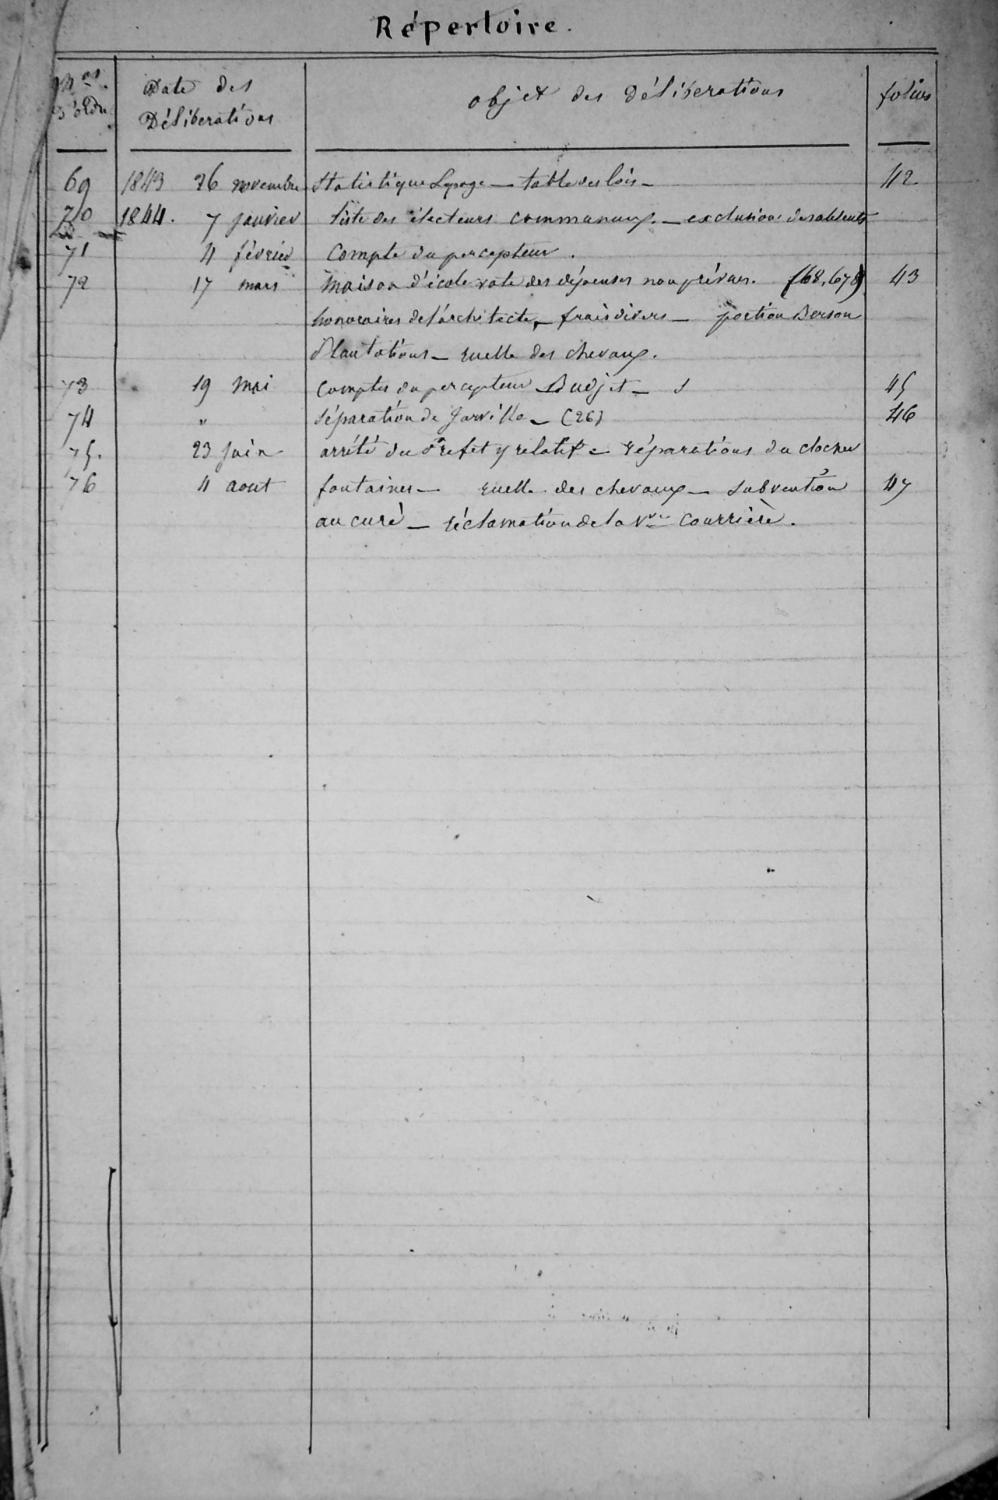 Répertoire.
Nos d'ordre Date des Délibérations objet des Délibérations folios
69 1843 26 novembre Statistique Lepage — table des lois — 42
70 1844. 7 janvier liste des électeurs communaux — exclusion des absents
71 4 février Compte du percepteur.
72 17 mars Maison d'école vote des dépenses non prévues. (68, 67 43
honoraires de l'architecte, — frais divers — portion Berson
Plantations — ruelle des chevaux.
73 19 Mai Comptes du percepteur Budjet — 45
74 " Séparation de Jarville — (26) 46
75. 23 Juin arrêté du Préfet y relatif — réparations du clocher
76 4 aout fontaines — ruelle des chevaux — subvention 47
au curé — réclamation de la Vve Courrière.